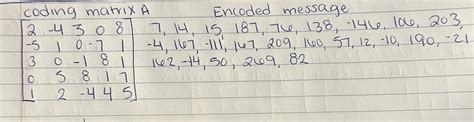 coding matrix A Encoded message
2 -4 3 0 8 7, 14, 15, 187, 76, 138, -146, 106, 203,
-5 1 0 -7 1 -4, 167, -111, 167, 209, 160, 57, 12, -10, 190, -21
3 0 -1 8 1 162, -14, 50, 269, 82
0 5 8 1 7
1 2 -4 4 5